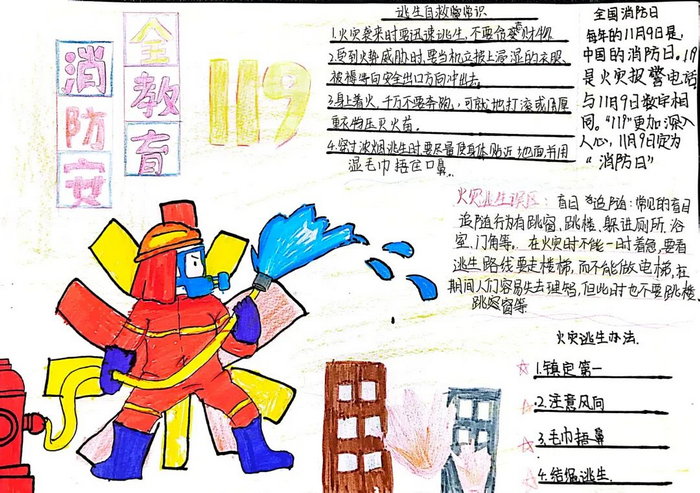 消防安
全教育
119
逃生自救知识
1.火灾袭来时要迅速逃生,不要贪婪财物
2.受到火势威胁时,要当机立披上浸湿的衣服
被褥等向安全出口方向冲出去。
3.身上着火,千万不要奔跑,可就地打滚或用厚
重衣物压灭火苗.
4.穿过浓烟逃生时要尽量使身体贴近地面,并用
湿毛巾捂住口鼻.
全国消防日
每年的11月9日是
中国的消防日。119
是火灾报警电话
与11月9日数字相
同。“119”更加深入
人心,11月9日定为
“消防日”
火灾逃生误区:盲目追随:常见的盲目
追随行为有跳窗、跳楼、躲进厕所、浴
室、门角等。在火灾时不能一时着急,要看
逃生路线要走楼梯,而不能做电梯,在
期间人们容易失去理智,但此时也不要跳楼
跳窗等
火灾逃生办法.
1.镇定第一
2.注意风向
3.毛巾捂鼻
4.结绳逃生.